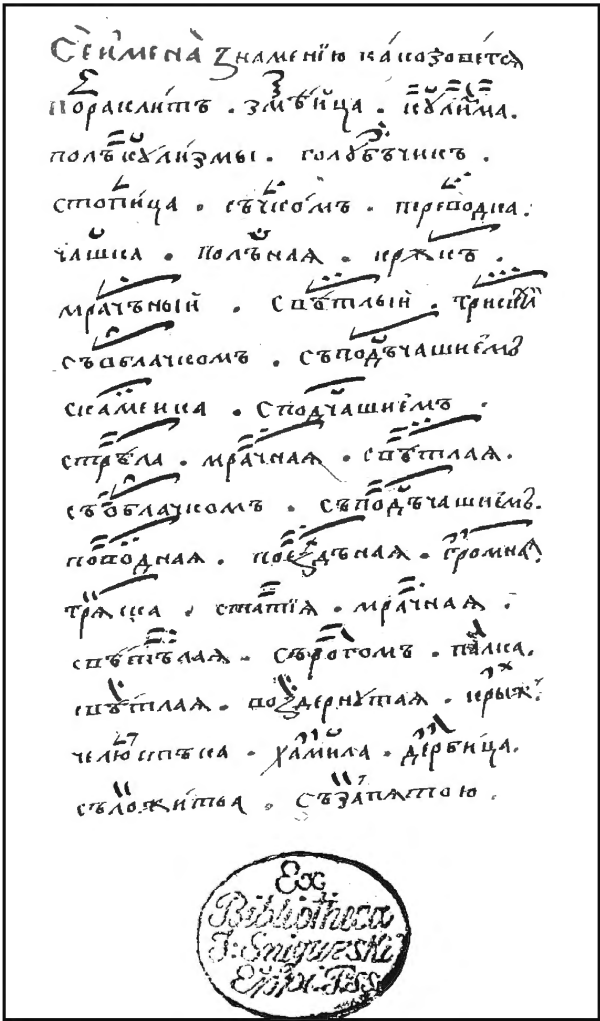 Сѐ и҆мена̀ знаменїю ка́кѡ зове́тсѧ
Пораклитъ . змѣи́ца . кꙋли́зма.
полъкꙋли́змы . голꙋбъчикъ .
стопи́ца . съѡчко́мъ . перево́дка .
чашка . полъная . крюкъ .
мрачъный . свѣтлый .
съѡблачкомъ . съподъчашиемъ
скаме́ица . сподчашиемъ .
стрѣла . мрачная . свѣтлая .
съѡблачкомъ . съподъчашиемъ .
поводная . поездъная . громная .
трѧска . статїя . мрачная .
свѣтълая . сърогомъ . палка .
свѣтлая . воздернутая . крыжъ .
челюстъка . хамила . дербица .
съложитъа . съзапѧтою .
Ex
Bibliotheca
J: Snigurski
Eppi. Pss